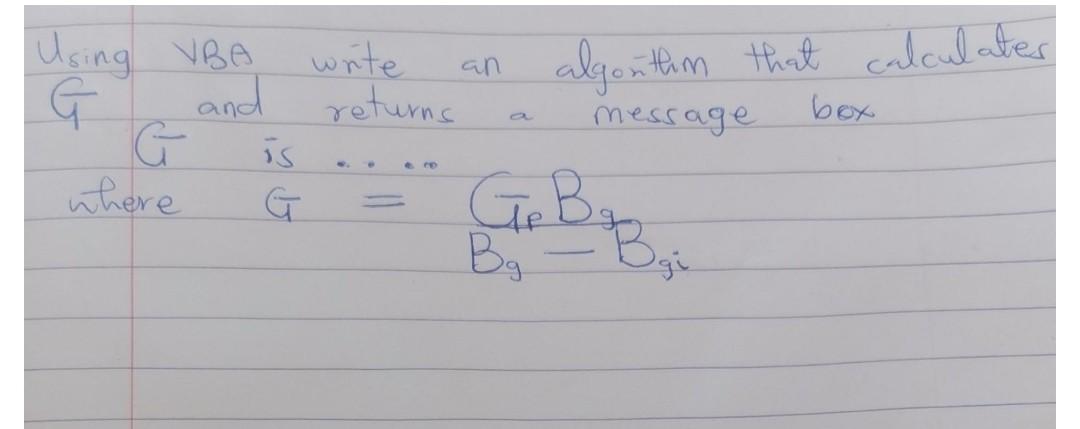 Using VBA write an algorithm that calculates
G and returns a message box
G is .....
where G = GpBg
Bg - Bgi